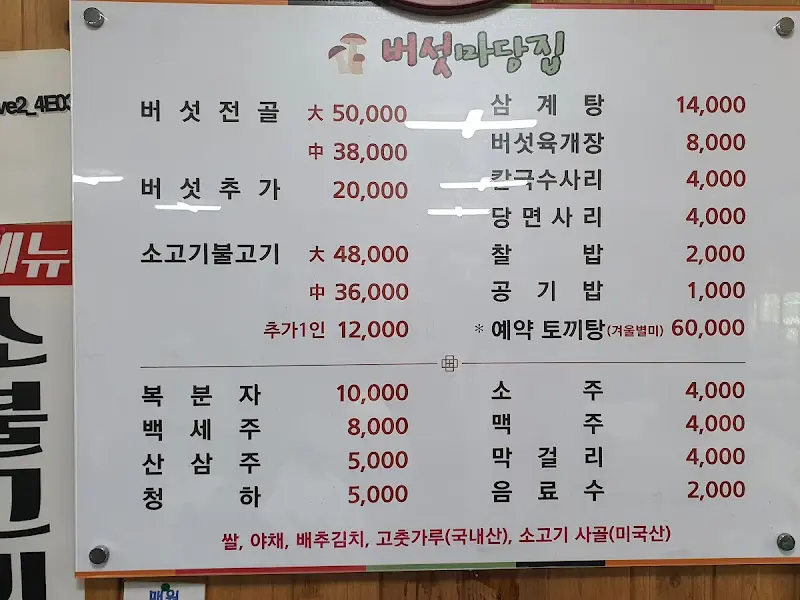 버섯마당집
버섯전골 大 50,000
中 38,000
버섯추가 20,000
소고기불고기 大 48,000
中 36,000
추가1인 12,000
삼계탕 14,000
버섯육개장 8,000
칼국수사리 4,000
당면사리 4,000
찰밥 2,000
공기밥 1,000
*예약 토끼탕(겨울별미) 60,000
복분자 10,000
백세주 8,000
산삼주 5,000
청하 5,000
소주 4,000
맥주 4,000
막걸리 4,000
음료수 2,000
쌀, 야채, 배추김치, 고춧가루(국내산), 소고기 사골(미국산)
ve2_4E03
메뉴
소불고기